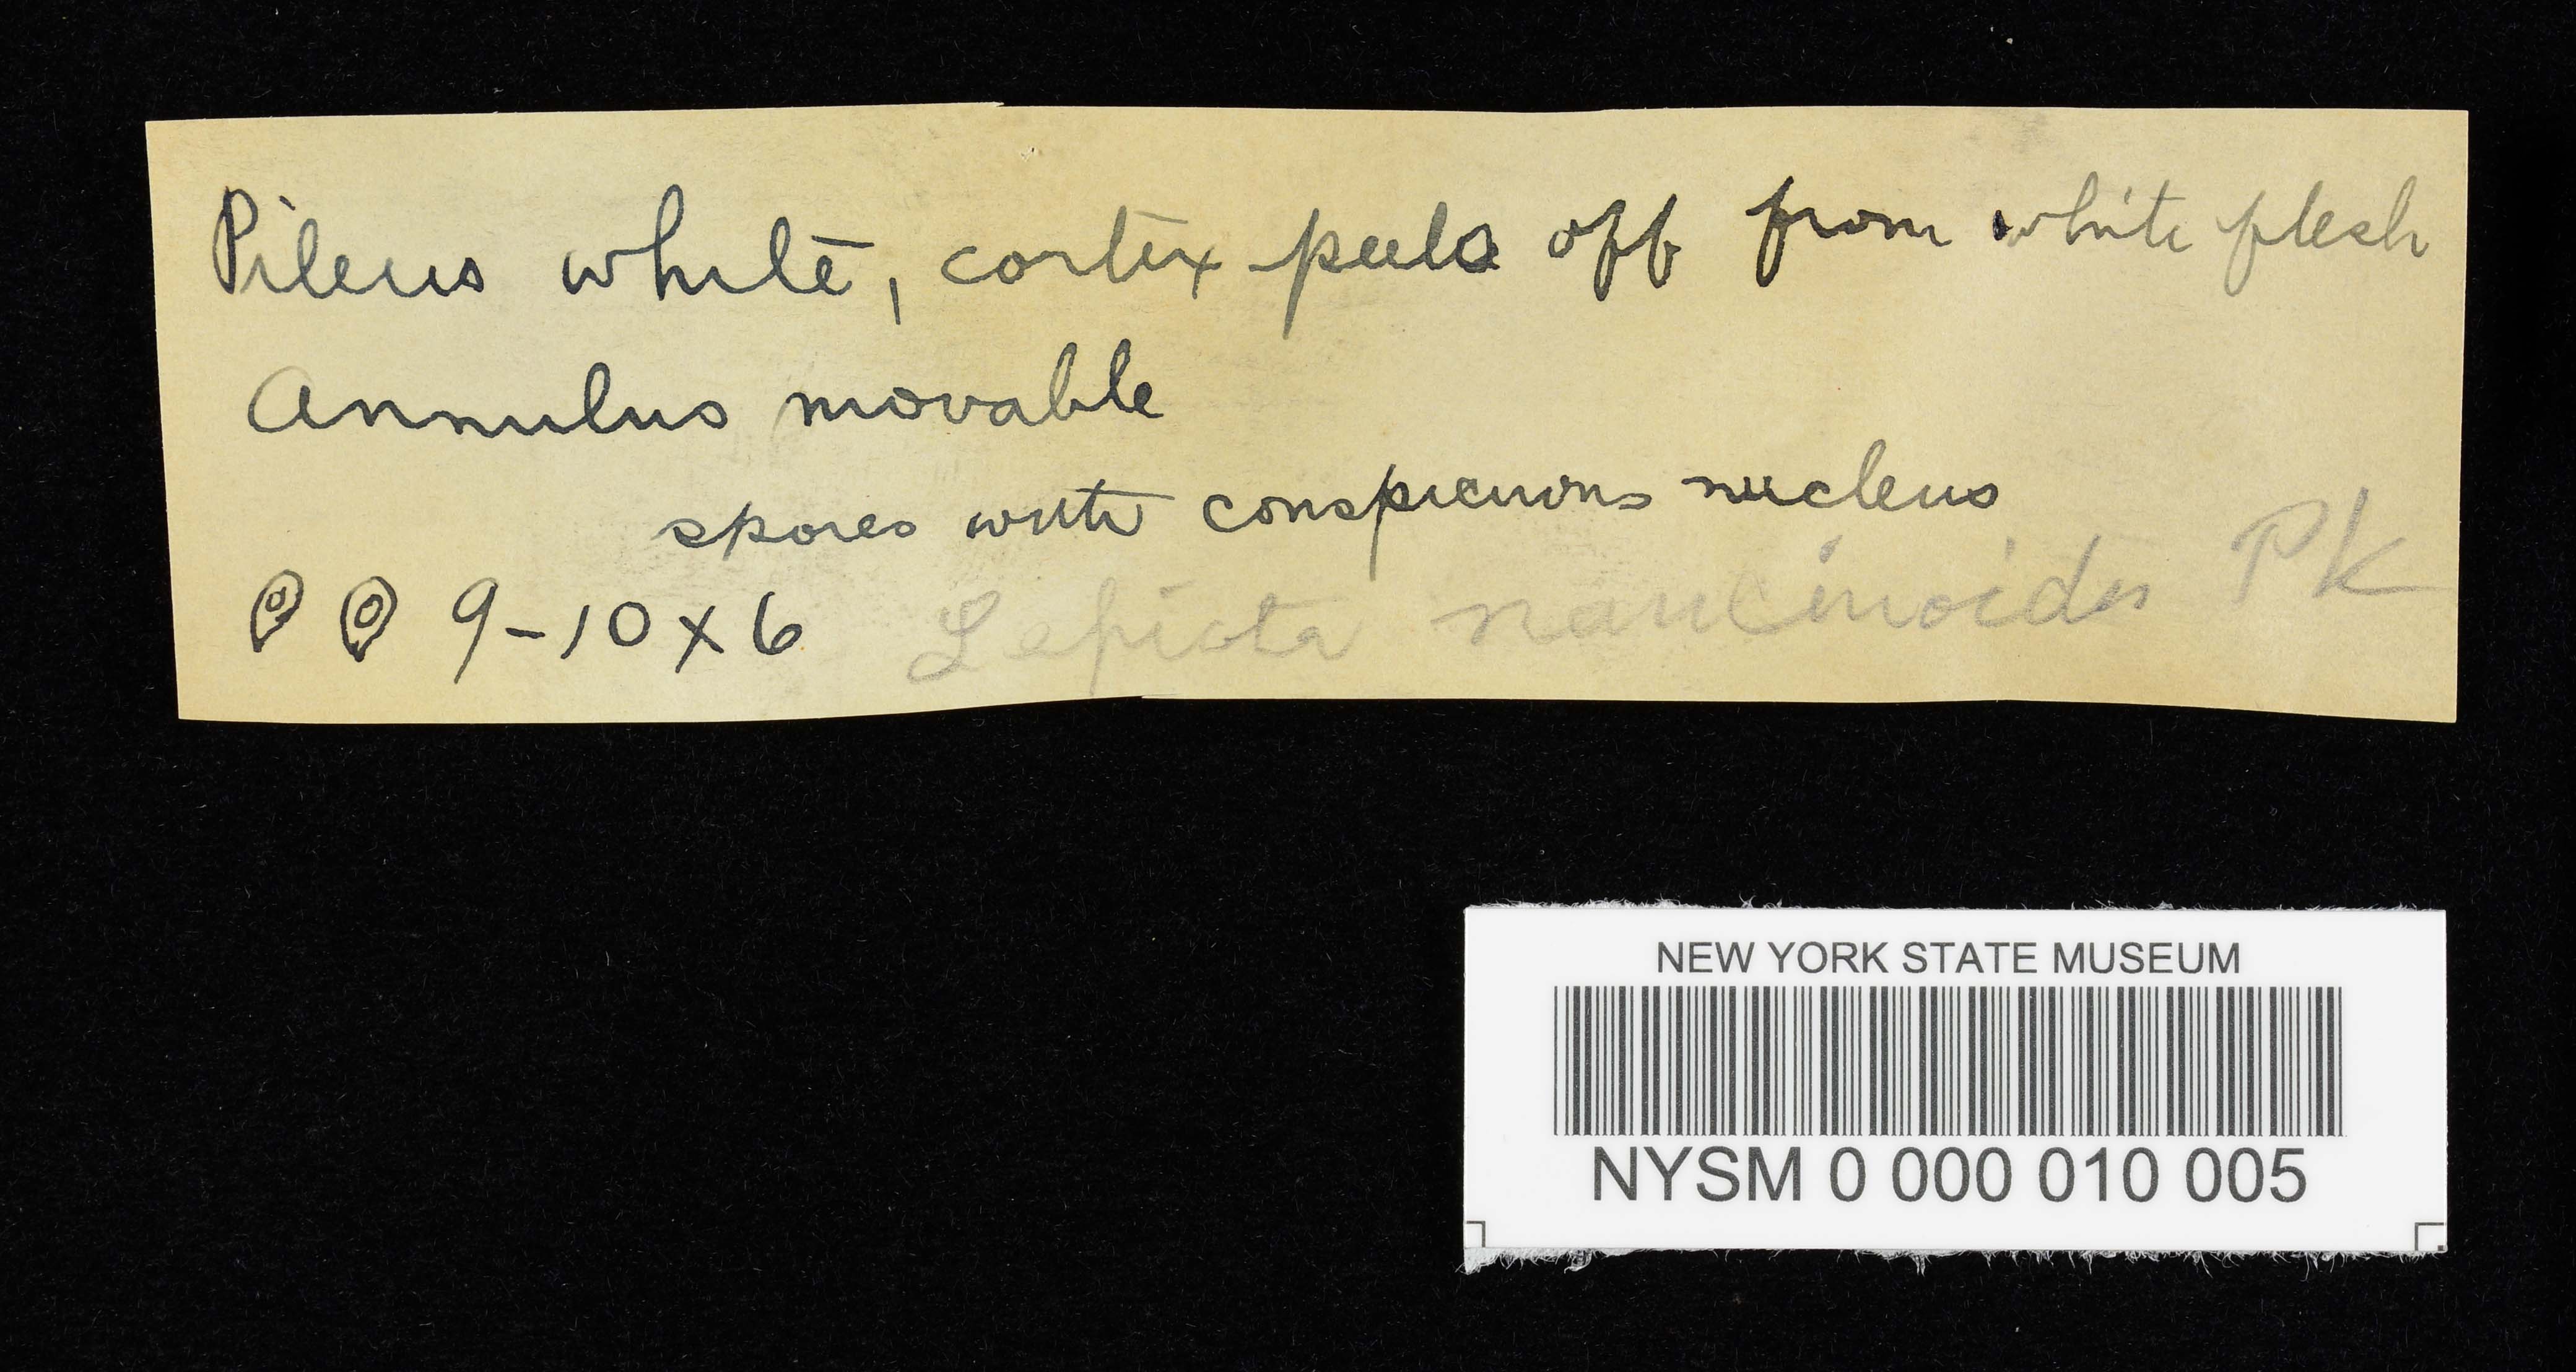 Pileus white, cortex peels off from white flesh
Annulus movable
spores with conspicuous nucleus
9-10 x 6 Lepiota naucinoides Pk
NEW YORK STATE MUSEUM
NYSM 0 000 010 005